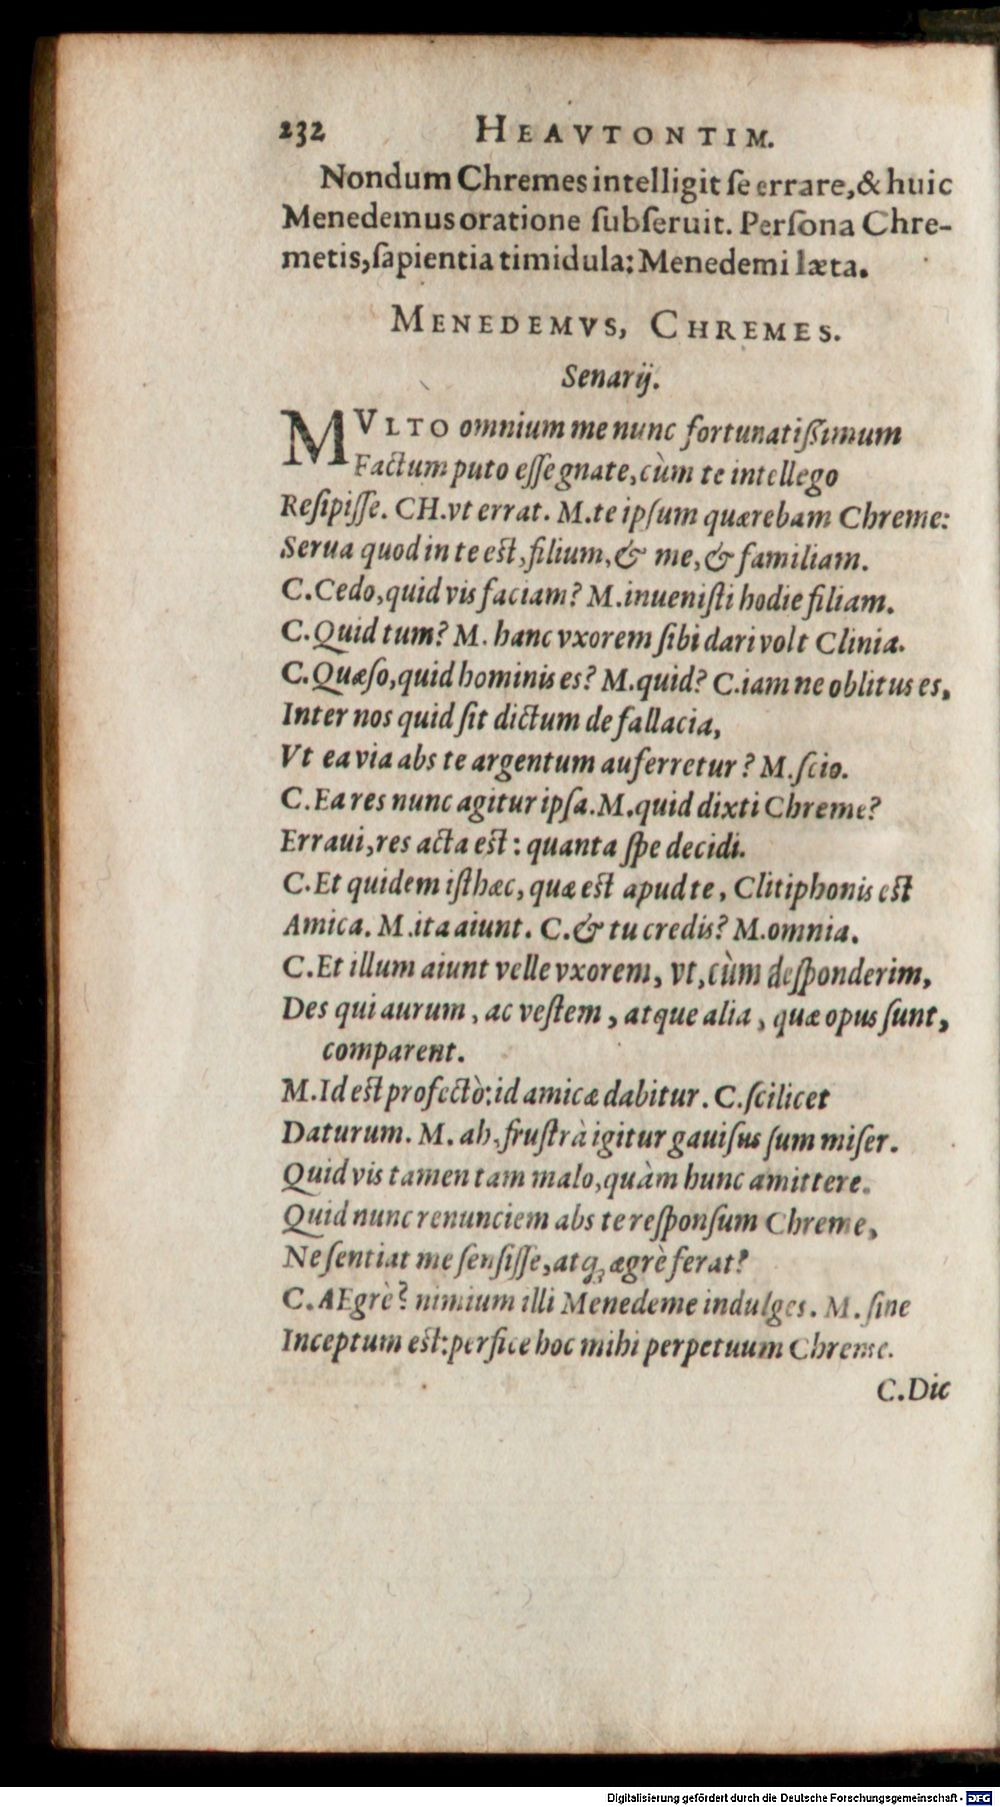 232 HEAVTONTIM.
Nondum Chremes intelligit ſe errare,& huic
Menedemus oratione ſubſeruit. Perſona Chre-
metis,ſapientia timidula: Menedemi læta.
MENEDEMVS, CHREMES.
Senarij.
MVLTO omnium me nunc fortunatiſſimum
Factum puto eſſe gnate,cùm te intellego
Reſipiſſe. CH.vt errat. M.te ipſum quærebam Chreme:
Serua quod in te eſt,filium,& me,& familiam.
C.Cedo,quid vis faciam? M.inueniſti hodie filiam.
C.Quid tum? M. hanc vxorem ſibi dari volt Clinia.
C.Quæſo,quid hominis es? M.quid? C.iam ne oblitus es,
Inter nos quid ſit dictum de fallacia,
Vt ea via abs te argentum auferretur? M.ſcio.
C.Ea res nunc agitur ipſa.M.quid dixti Chreme?
Erraui,res acta eſt: quanta ſpe decidi.
C.Et quidem iſthæc, quæ eſt apud te, Clitiphonis eſt
Amica. M.ita aiunt. C.& tu credis? M.omnia.
C.Et illum aiunt velle vxorem, vt,cùm deſponderim,
Des qui aurum, ac veſtem, atque alia, quæ opus ſunt,
comparent.
M.Id eſt profectò:id amicæ dabitur. C.ſcilicet
Daturum. M. ah,fruſtrà igitur gauiſus ſum miſer.
Quid vis tamen tam malo,quàm hunc amittere.
Quid nunc renunciem abs te reſponſum Chreme,
Ne ſentiat me ſenſiſſe,atq; ægrè ferat?
C.AEgrè? nimium illi Menedeme indulges. M.ſine
Inceptum eſt:perfice hoc mihi perpetuum Chreme.
C.Dic
Digitalisierung gefördert durch die Deutsche Forschungsgemeinschaft - DFG